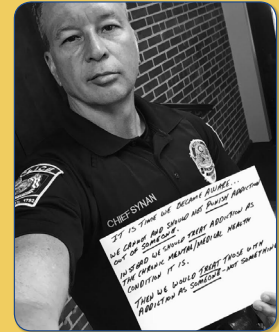 CHIEF SYNAN
1792
IT IS TIME WE BECAME AWARE...
WE CANNOT AND SHOULD NOT PUNISH ADDICTION
OUT OF SOMEONE.
INSTEAD WE SHOULD TREAT ADDICTION AS
THE CHRONIC MENTAL/MEDICAL HEALTH
CONDITION IT IS.
THEN WE WOULD TREAT THOSE WITH
ADDICTION AS SOMEONE - NOT SOMETHING